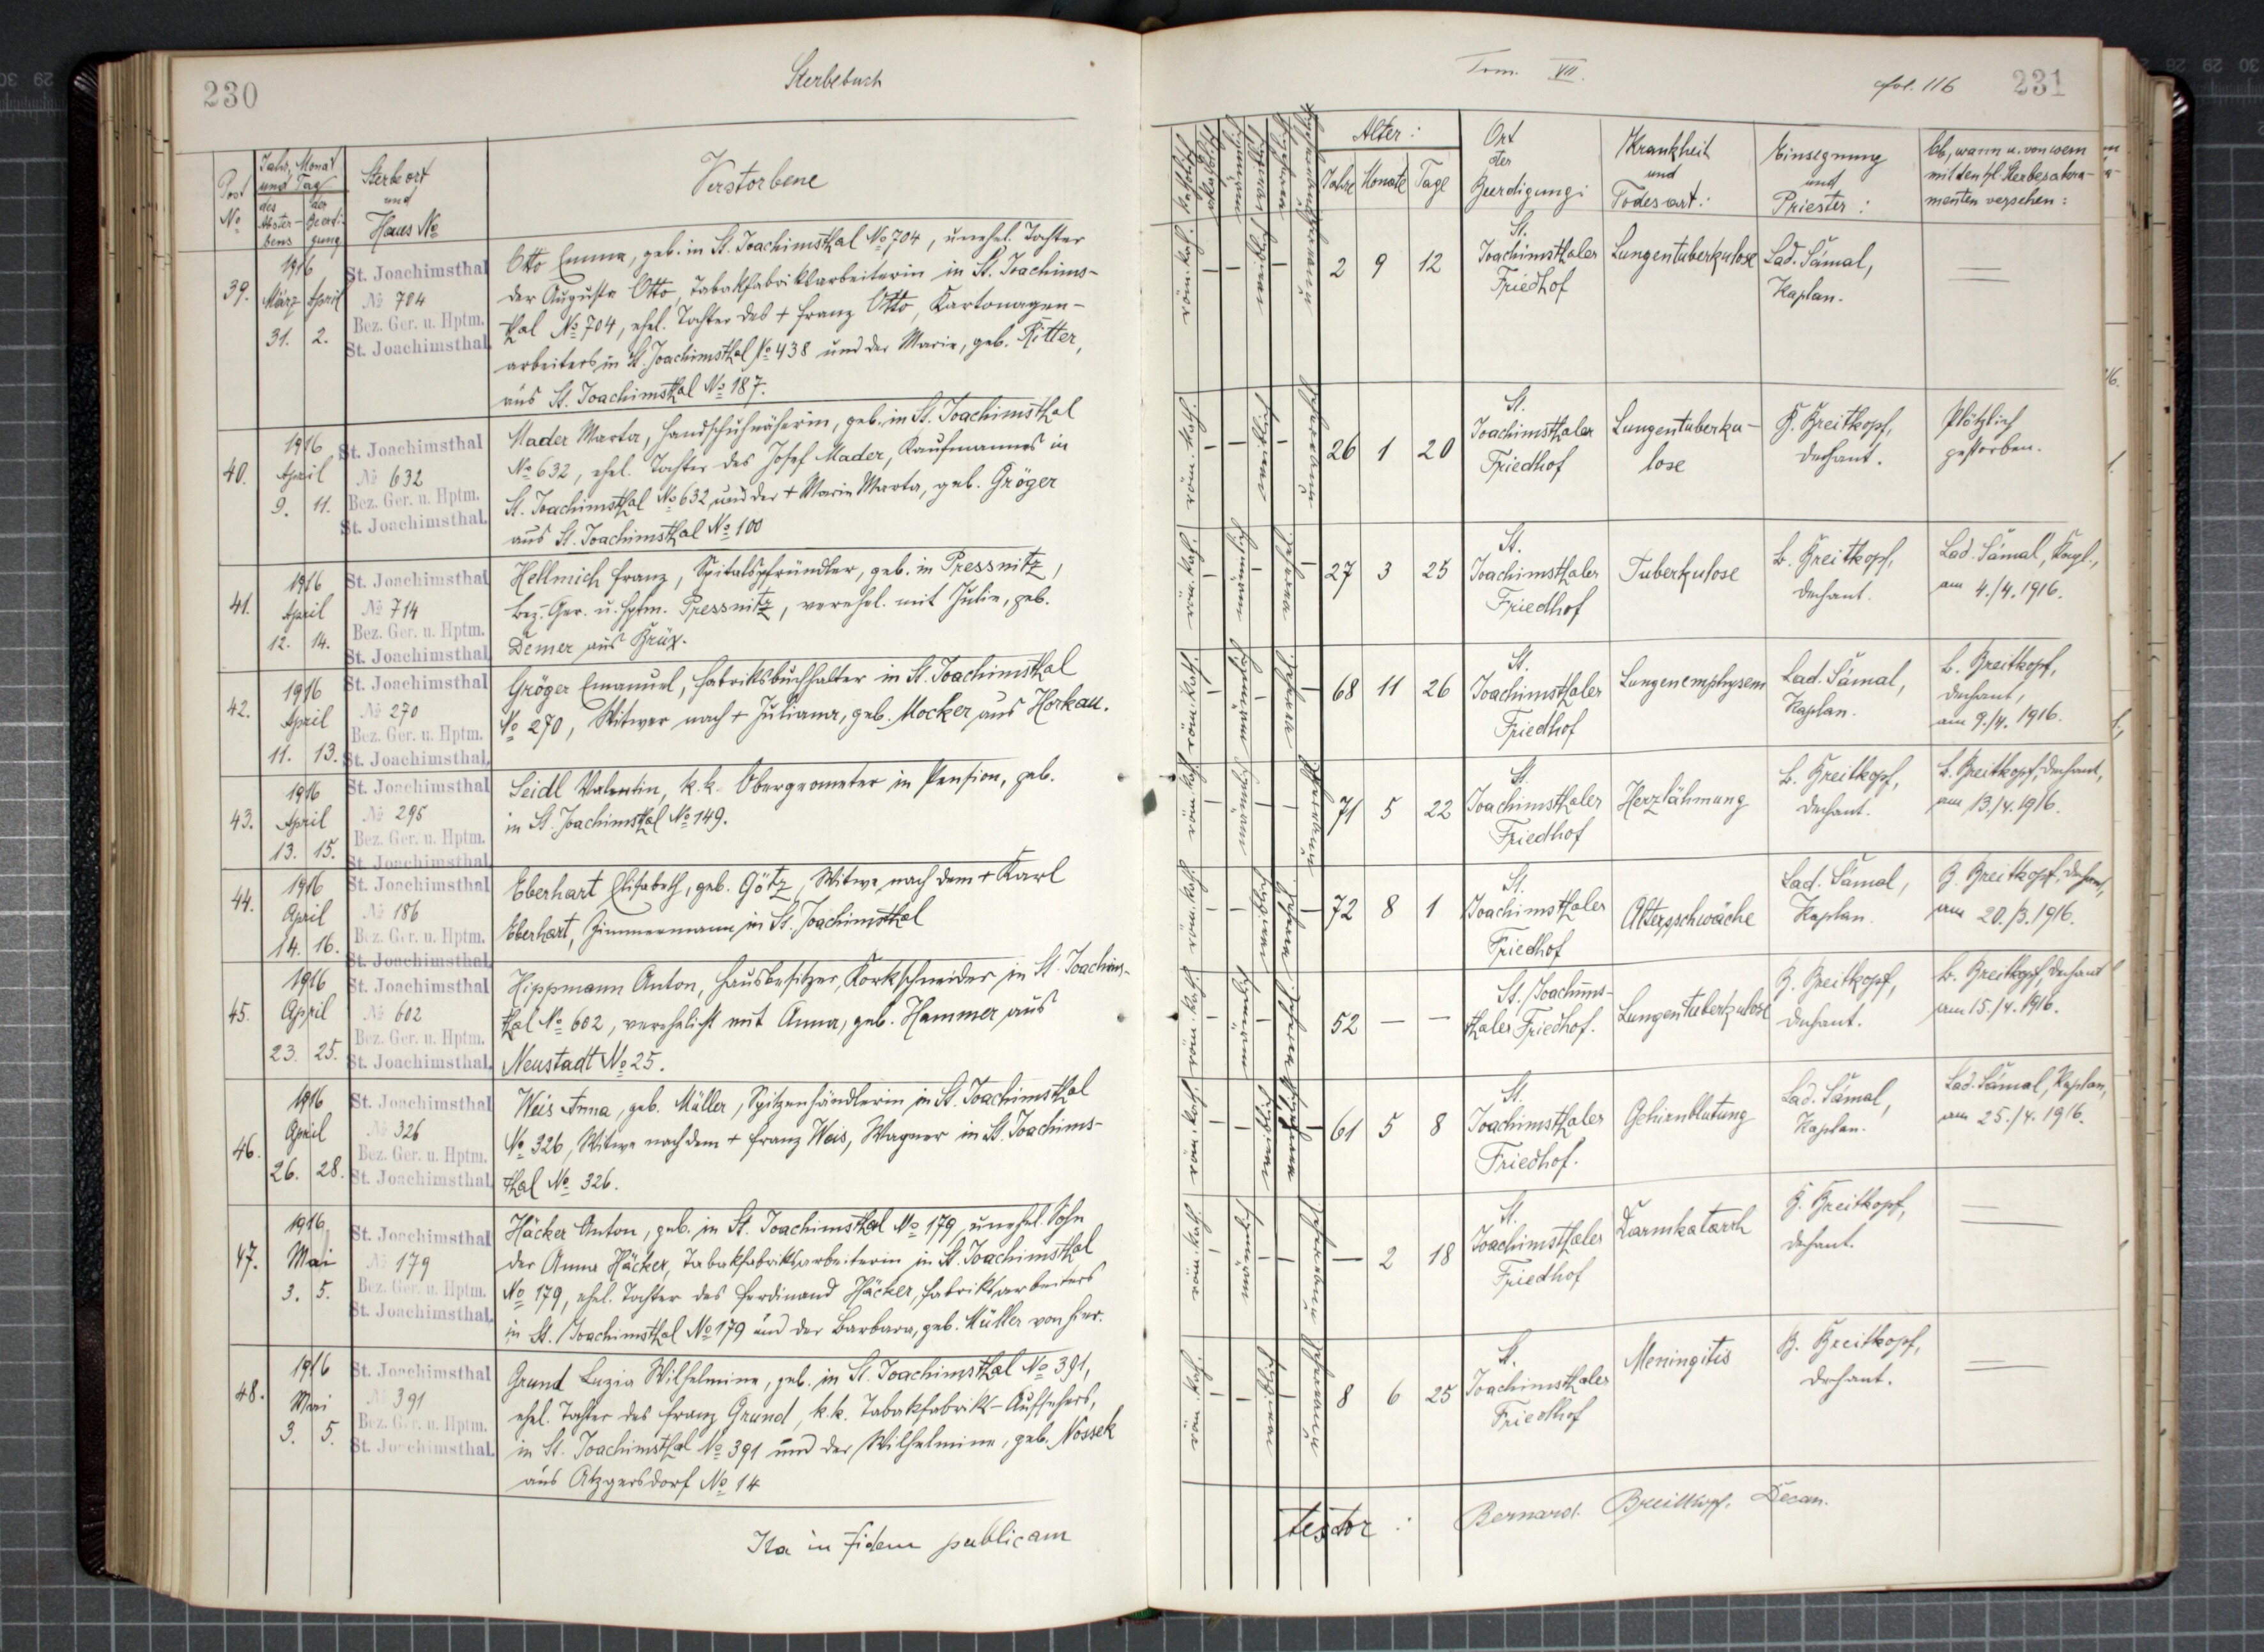 230
Sterbebuch
Post No
Jahr, Monat und Tag
des Absterbens
der Beerdigung
Sterbeort und Haus No
Verstorbene
39.
1916
März April
31. 2.
St. Joachimsthal
No 704
Bez. Ger. u. Hptm.
St. Joachimsthal.
Otto Emma, geb. in St. Joachimsthal No 704, unehel. Tochter
der Augusta Otto, Tabakfabriksarbeiterin in St. Joachims-
thal No 704, ehel. Tochter des + Franz Otto, Kartonagen-
arbeiters in St. Joachimsthal No 438 und der Marie, geb. Ritter,
aus St. Joachimsthal No 187.
40.
1916
April
9. 11.
St. Joachimsthal
No 632
Bez. Ger. u. Hptm.
St. Joachimsthal.
Mader Marta, Handschuhnäherin, geb. in St. Joachimsthal
No 632, ehel. Tochter des Josef Mader, Kaufmannes in
St. Joachimsthal No 632 und der + Marie Marta, geb. Gröger
aus St. Joachimsthal No 100
41.
1916
April
12. 14.
St. Joachimsthal
No 714
Bez. Ger. u. Hptm.
St. Joachimsthal.
Hellmich Franz, Spitalspfründler, geb. in Pressnitz,
Bez. Ger. u. Hptm. Pressnitz, verehel. mit Julie, geb.
Demer aus Brüx.
42.
1916
April
11. 13.
St. Joachimsthal
No 270
Bez. Ger. u. Hptm.
St. Joachimsthal.
Gröger Emanuel, Fabriksbuchhalter in St. Joachimsthal
No 270, Witwer nach + Juliana, geb. Mocker aus Horkau.
43.
1916
April
13. 15.
St. Joachimsthal
No 295
Bez. Ger. u. Hptm.
St. Joachimsthal.
Seidl Valentin, k.k. Obergeometer in Pension, geb.
in St. Joachimsthal No 149.
44.
1916
April
14. 16.
St. Joachimsthal
No 186
Bez. Ger. u. Hptm.
St. Joachimsthal.
Eberhart Elisabeth, geb. Götz, Witwe nach dem + Karl
Eberhart, Zimmermann in St. Joachimsthal
45.
1916
April
23. 25.
St. Joachimsthal
No 602
Bez. Ger. u. Hptm.
St. Joachimsthal.
Hippmann Anton, Hausbesitzer, Korkschneider in St. Joachims-
thal No 602, verehelicht mit Anna, geb. Hammer aus
Neustadt No 25.
46.
1916
April
26. 28.
St. Joachimsthal
No 326
Bez. Ger. u. Hptm.
St. Joachimsthal.
Weis Anna, geb. Müller, Spitzenhändlerin in St. Joachimsthal
No 326, Witwe nach dem + Franz Weis, Wagner in St. Joachims-
thal No 326.
47.
1916
Mai
3. 5.
St. Joachimsthal
No 179
Bez. Ger. u. Hptm.
St. Joachimsthal.
Häcker Anton, geb. in St. Joachimsthal No 179, unehel. Sohn
der Anna Häcker, Tabakfabriksarbeiterin in St. Joachimsthal
No 179, ehel. Tochter des Ferdinand Häcker, Fabriksarbeiters
in St. Joachimsthal No 179 und der Barbara, geb. Müller von hier.
48.
1916
Mai
3. 5.
St. Joachimsthal
No 391
Bez. Ger. u. Hptm.
St. Joachimsthal.
Grund Luzia Wilhelmine, geb. in St. Joachimsthal No 391,
ehel. Tochter des Franz Grund, k.k. Tabakfabriks-Aufsehers,
in St. Joachimsthal No 391 und der Wilhelmine, geb. Nossek
aus Atzgersdorf No 14
Ita in fidem publicam
Tom. VII.
fol. 116
231
katholisch
akatholisch
männlich
weiblich
Alter:
Jahre Monate Tage
Ort der Beerdigung:
Krankheit und Todesart:
Einsegnung und Priester:
Ob, wann u. von wem
mit den hl. Sterbesakra-
menten versehen:
röm. kath. — — weiblich — 2 9 12
St. Joachimsthaler Friedhof
Lungentuberkulose
Lad. Šámal, Kaplan.
röm. kath. — — weiblich — 26 1 20
St. Joachimsthaler Friedhof
Lungentuberku-
lose
B. Breitkopf, Dechant.
Plötzlich
gestorben.
röm. kath. — männlich — 27 3 25
St. Joachimsthaler Friedhof
Tuberkulose
B. Breitkopf, Dechant.
Lad. Šámal, Kapl.,
am 4./4. 1916.
röm. kath. — männlich — 68 11 26
St. Joachimsthaler Friedhof
Lungenemphysem
Lad. Šámal, Kaplan.
B. Breitkopf,
Dechant,
am 9./4. 1916.
röm. kath. — männlich — 71 5 22
St. Joachimsthaler Friedhof
Herzlähmung
B. Breitkopf, Dechant.
B. Breitkopf, Dechant,
am 13./4. 1916.
röm. kath. — — weiblich — 72 8 1
St. Joachimsthaler Friedhof
Altersschwäche
Lad. Šámal, Kaplan.
B. Breitkopf, Dechant,
am 20./3. 1916.
röm. kath. — männlich — 52 — —
St. Joachims-
thaler Friedhof.
Lungentuberkulose
B. Breitkopf, Dechant.
B. Breitkopf, Dechant
am 15./4. 1916.
röm. kath. — — weiblich — 61 5 8
St. Joachimsthaler Friedhof.
Gehirnblutung
Lad. Šámal, Kaplan.
Lad. Šámal, Kaplan,
am 25./4. 1916.
röm. kath. — männlich — — 2 18
St. Joachimsthaler Friedhof
Darmkatarrh
B. Breitkopf, Dechant.
röm. kath. — — weiblich — 8 6 25
St. Joachimsthaler Friedhof
Meningitis
B. Breitkopf, Dechant.
testor: Bernard. Breitkopf, Decan.